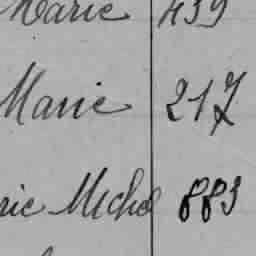 Marie 439
Marie 217
rie Michel 883